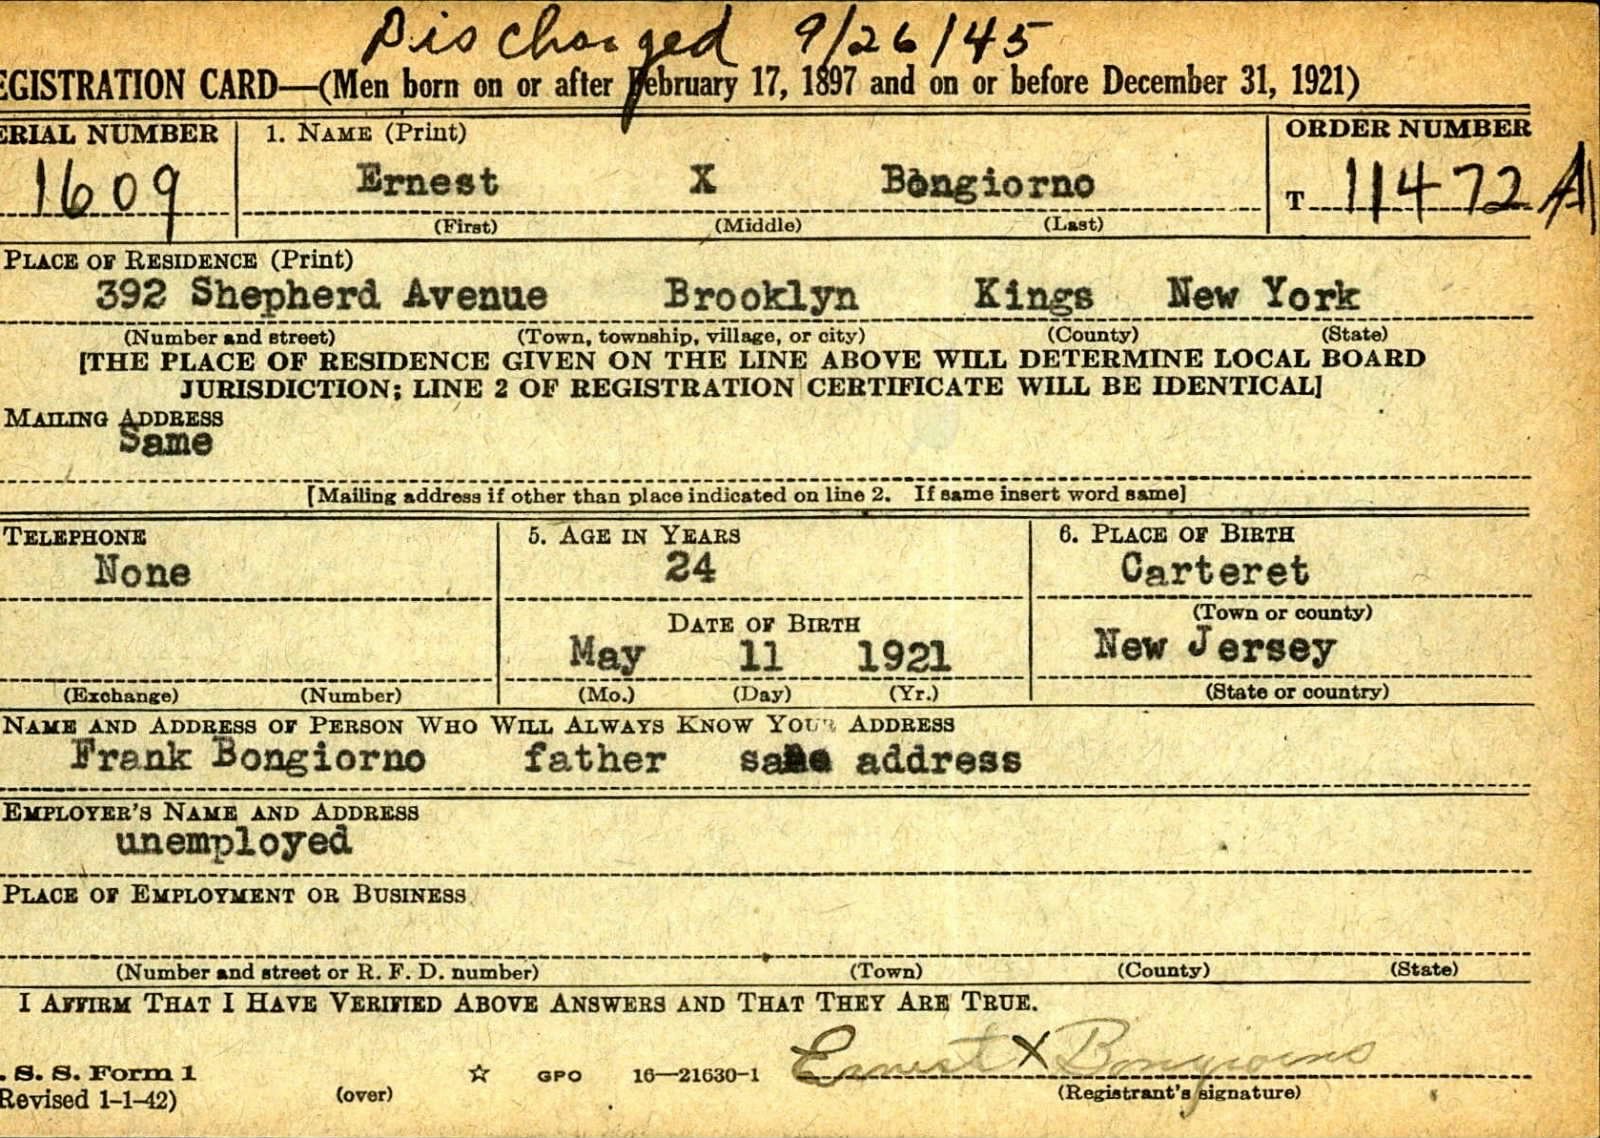 Discharged 9/26/45
EGISTRATION CARD—(Men born on or after February 17, 1897 and on or before December 31, 1921)
ERIAL NUMBER 1. NAME (Print) ORDER NUMBER
1609 Ernest X Bongiorno T 11472 A
(First) (Middle) (Last)
PLACE OF RESIDENCE (Print)
392 Shepherd Avenue Brooklyn Kings New York
(Number and street) (Town, township, village, or city) (County) (State)
[THE PLACE OF RESIDENCE GIVEN ON THE LINE ABOVE WILL DETERMINE LOCAL BOARD
JURISDICTION; LINE 2 OF REGISTRATION CERTIFICATE WILL BE IDENTICAL]
MAILING ADDRESS
Same
[Mailing address if other than place indicated on line 2. If same insert word same]
TELEPHONE 5. AGE IN YEARS 6. PLACE OF BIRTH
None 24 Carteret
DATE OF BIRTH (Town or county)
May 11 1921 New Jersey
(Exchange) (Number) (Mo.) (Day) (Yr.) (State or country)
NAME AND ADDRESS OF PERSON WHO WILL ALWAYS KNOW YOUR ADDRESS
Frank Bongiorno father same address
EMPLOYER'S NAME AND ADDRESS
unemployed
PLACE OF EMPLOYMENT OR BUSINESS
(Number and street or R. F. D. number) (Town) (County) (State)
I AFFIRM THAT I HAVE VERIFIED ABOVE ANSWERS AND THAT THEY ARE TRUE.
Ernest X Bongiorno
. S. S. Form 1 (over) ☆ GPO 16—21630-1 (Registrant's signature)
Revised 1-1-42)